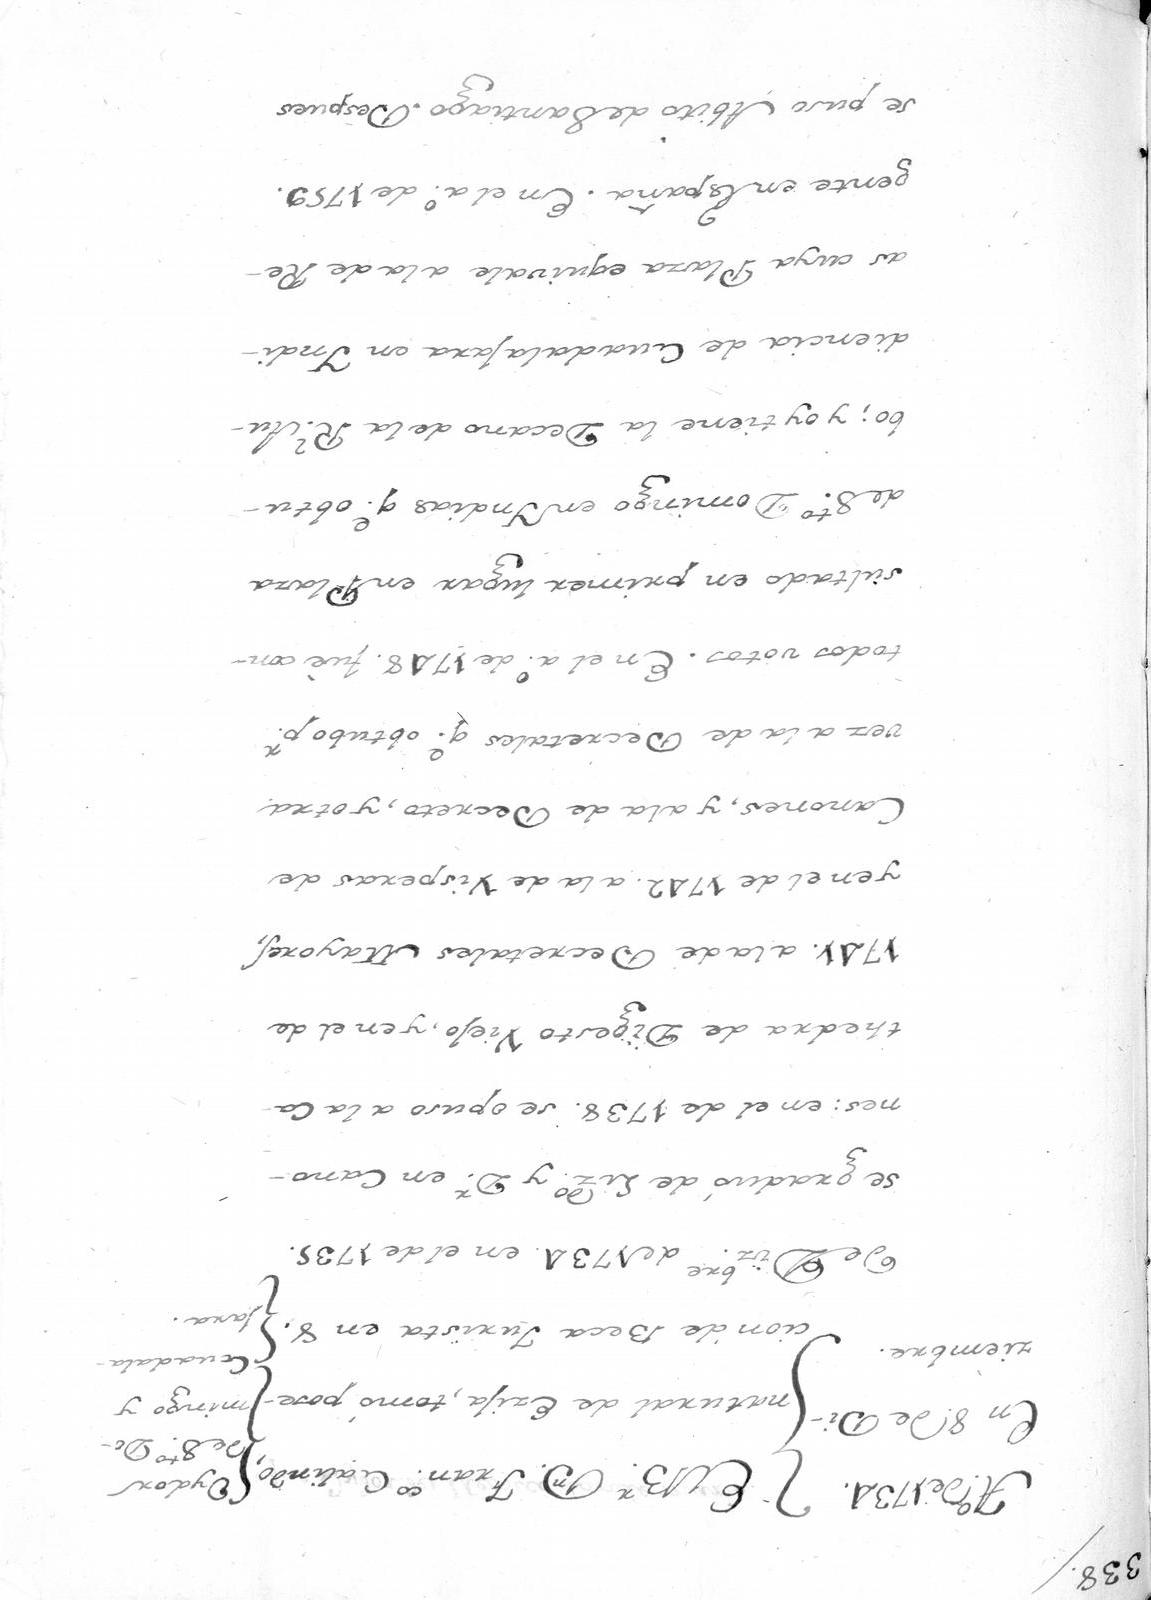 338.
Aº. de 1734.
En 8. de Di-
ziembre.
El B.r D.n Fran.co Galindo,
natural de Ezija, tomó pose-
cion de Beca Jurista en 8.
de Diz.bre de 1734. en el de 1735.
se graduó de Liz.do y D.r en Cano-
nes: en el de 1738. se opuso a la Ca-
thedra de Digesto Viejo, y en el de
1741. a la de Decretales Mayores,
y en el de 1742. a la de Visperas de
Canones, y a la de Decreto, y otra
vez a la de Decretales q.e obtubo p.r
todos votos. En el a.o de 1748. fuè con-
sultado en primer lugar en Plaza
de S.to Domingo en Indias q.e obtu-
bo; y oy tiene la Decano de la R.l Au-
diencia de Guadalajara en Indi-
as cuya Plaza equivale a la de Re-
gente en España. En el a.o de 1759.
se puso Abito de Santiago. Despues
Oydor
de S.to Do-
mingo y
Guadala-
jara.